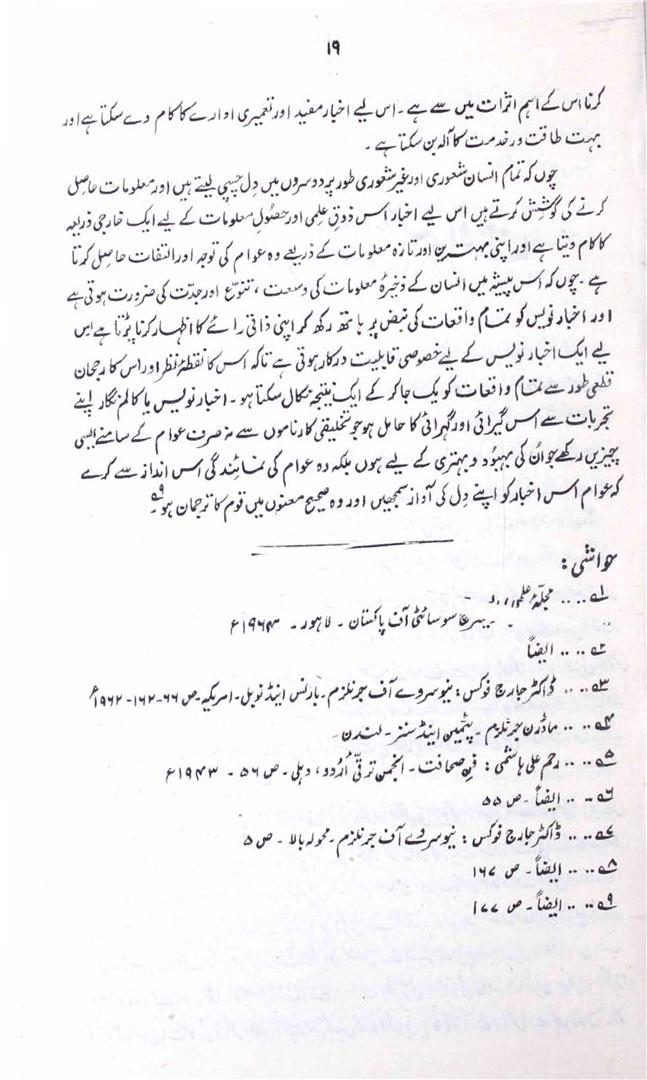 ۱۹
کرنا اس کے اہم اثرات میں سے ہے ۔ اس لیے اخبار مفید اور تعمیری ادارے کا کام دے سکتا ہے اور
بہت طاقت ور خدمت کا آلہ بن سکتا ہے ۔
چوں کہ تمام انسان شعوری اور غیر شعوری طور پر دوسروں میں دِل چسپی لیتے ہیں اور معلومات حاصل
کرنے کی کوشش کرتے ہیں اس لیے اخبار اس ذوقِ علمی اور حصُولِ معلومات کے لیے ایک خارجی ذریعہ
کا کام دیتا ہے اور اپنی بہترین اور تازہ معلومات کے ذریعے وہ عوام کی توجہ اور التفات حاصل کرتا
ہے ۔ چوں کہ اس پیشہ میں انسان کے ذخیرۂ معلومات کی وسعت ، تنوّع اور جدّت کی ضرورت ہوتی ہے
اور اخبار نویس کو تمام واقعات کی نبض پر ہاتھ رکھ کر اپنی ذاتی رائے کا اظہار کرنا پڑتا ہے اس
لیے ایک اخبار نویس کے لیے خصوصی قابلیت درکار ہوتی ہے تاکہ اس کا نقطۂ نظر اور اس کا رجحان
قطعی طور سے تمام واقعات کو یک جا کر کے ایک نتیجہ نکال سکتا ہو ۔ اخبار نویس یا کالم نگار اپنے
تجربات سے اس گیرائی اور گہرائی کا حامل ہو جو تخلیقی کارناموں سے نہ صرف عوام کے سامنے ایسی
چیزیں رکھے جو اُن کی بہبُود و بہتری کے لیے ہوں بلکہ وہ عوام کی نمائندگی اس انداز سے کرے
کہ عوام اس اخبار کو اپنے دِل کی آواز سمجھیں اور وہ صحیح معنوں میں قوم کا ترجمان ہو ۔ ۹؎
حواشی :
۱؎ .. .. مجلّۂ علمی
سوسائٹی آف پاکستان ۔ لاہور ۔ ۱۹۶۴ء
۲؎ .. .. ایضاً
۳؎ .. .. ڈاکٹر جارج فوکس : نیو سروے آف جرنلزم ۔ بارنس اینڈ نوبل ۔ امریکہ ۔ ص ۶۶-۱۶۲ - ۱۹۶۲ء
۴؎ .. .. ماڈرن جرنلزم ۔ پٹمین اینڈ سنز ۔ لندن ۔
۵؎ .. .. رحم علی ہاشمی : فنِ صحافت ۔ انجمن ترقّی اُردو ، دہلی ۔ ص ۵۶ ۔ ۱۹۴۳ء
۶؎ .. .. ایضاً ۔ ص ۵۵
۷؎ .. .. ڈاکٹر جارج فوکس : نیو سروے آف جرنلزم ۔ محولہ بالا ۔ ص ۵
۸؎ .. .. ایضاً ۔ ص ۱۶۷
۹؎ .. .. ایضاً ۔ ص ۱۷۷